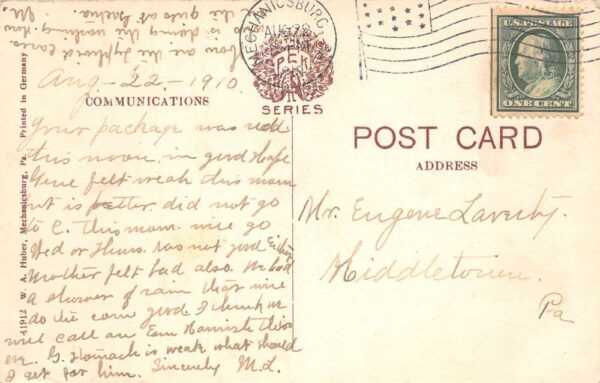 How are the Typhoid cases
is doing the washing now
the girls at
M.
Aug-22-1910
COMMUNICATIONS
Your package was recd
this noon in good shape
Gene felt weak this morn
but is better. did not go
to C. this morn. may go
Wed or Thurs. was not good either
Mother felt bad also. We had
a shower of rain that will
do the corn good. I think we
will call on Em this
eve. G. stomach is weak what should
I get for him. Sincerely M.L.
A1912 W. A. Huber, Mechanicsburg, Pa. Printed in Germany
MECHANICSBURG
AUG 22
PCK
SERIES
U.S. POSTAGE
ONE CENT
POST CARD
ADDRESS
Mr. Eugene Laverty.
Middletown.
Pa